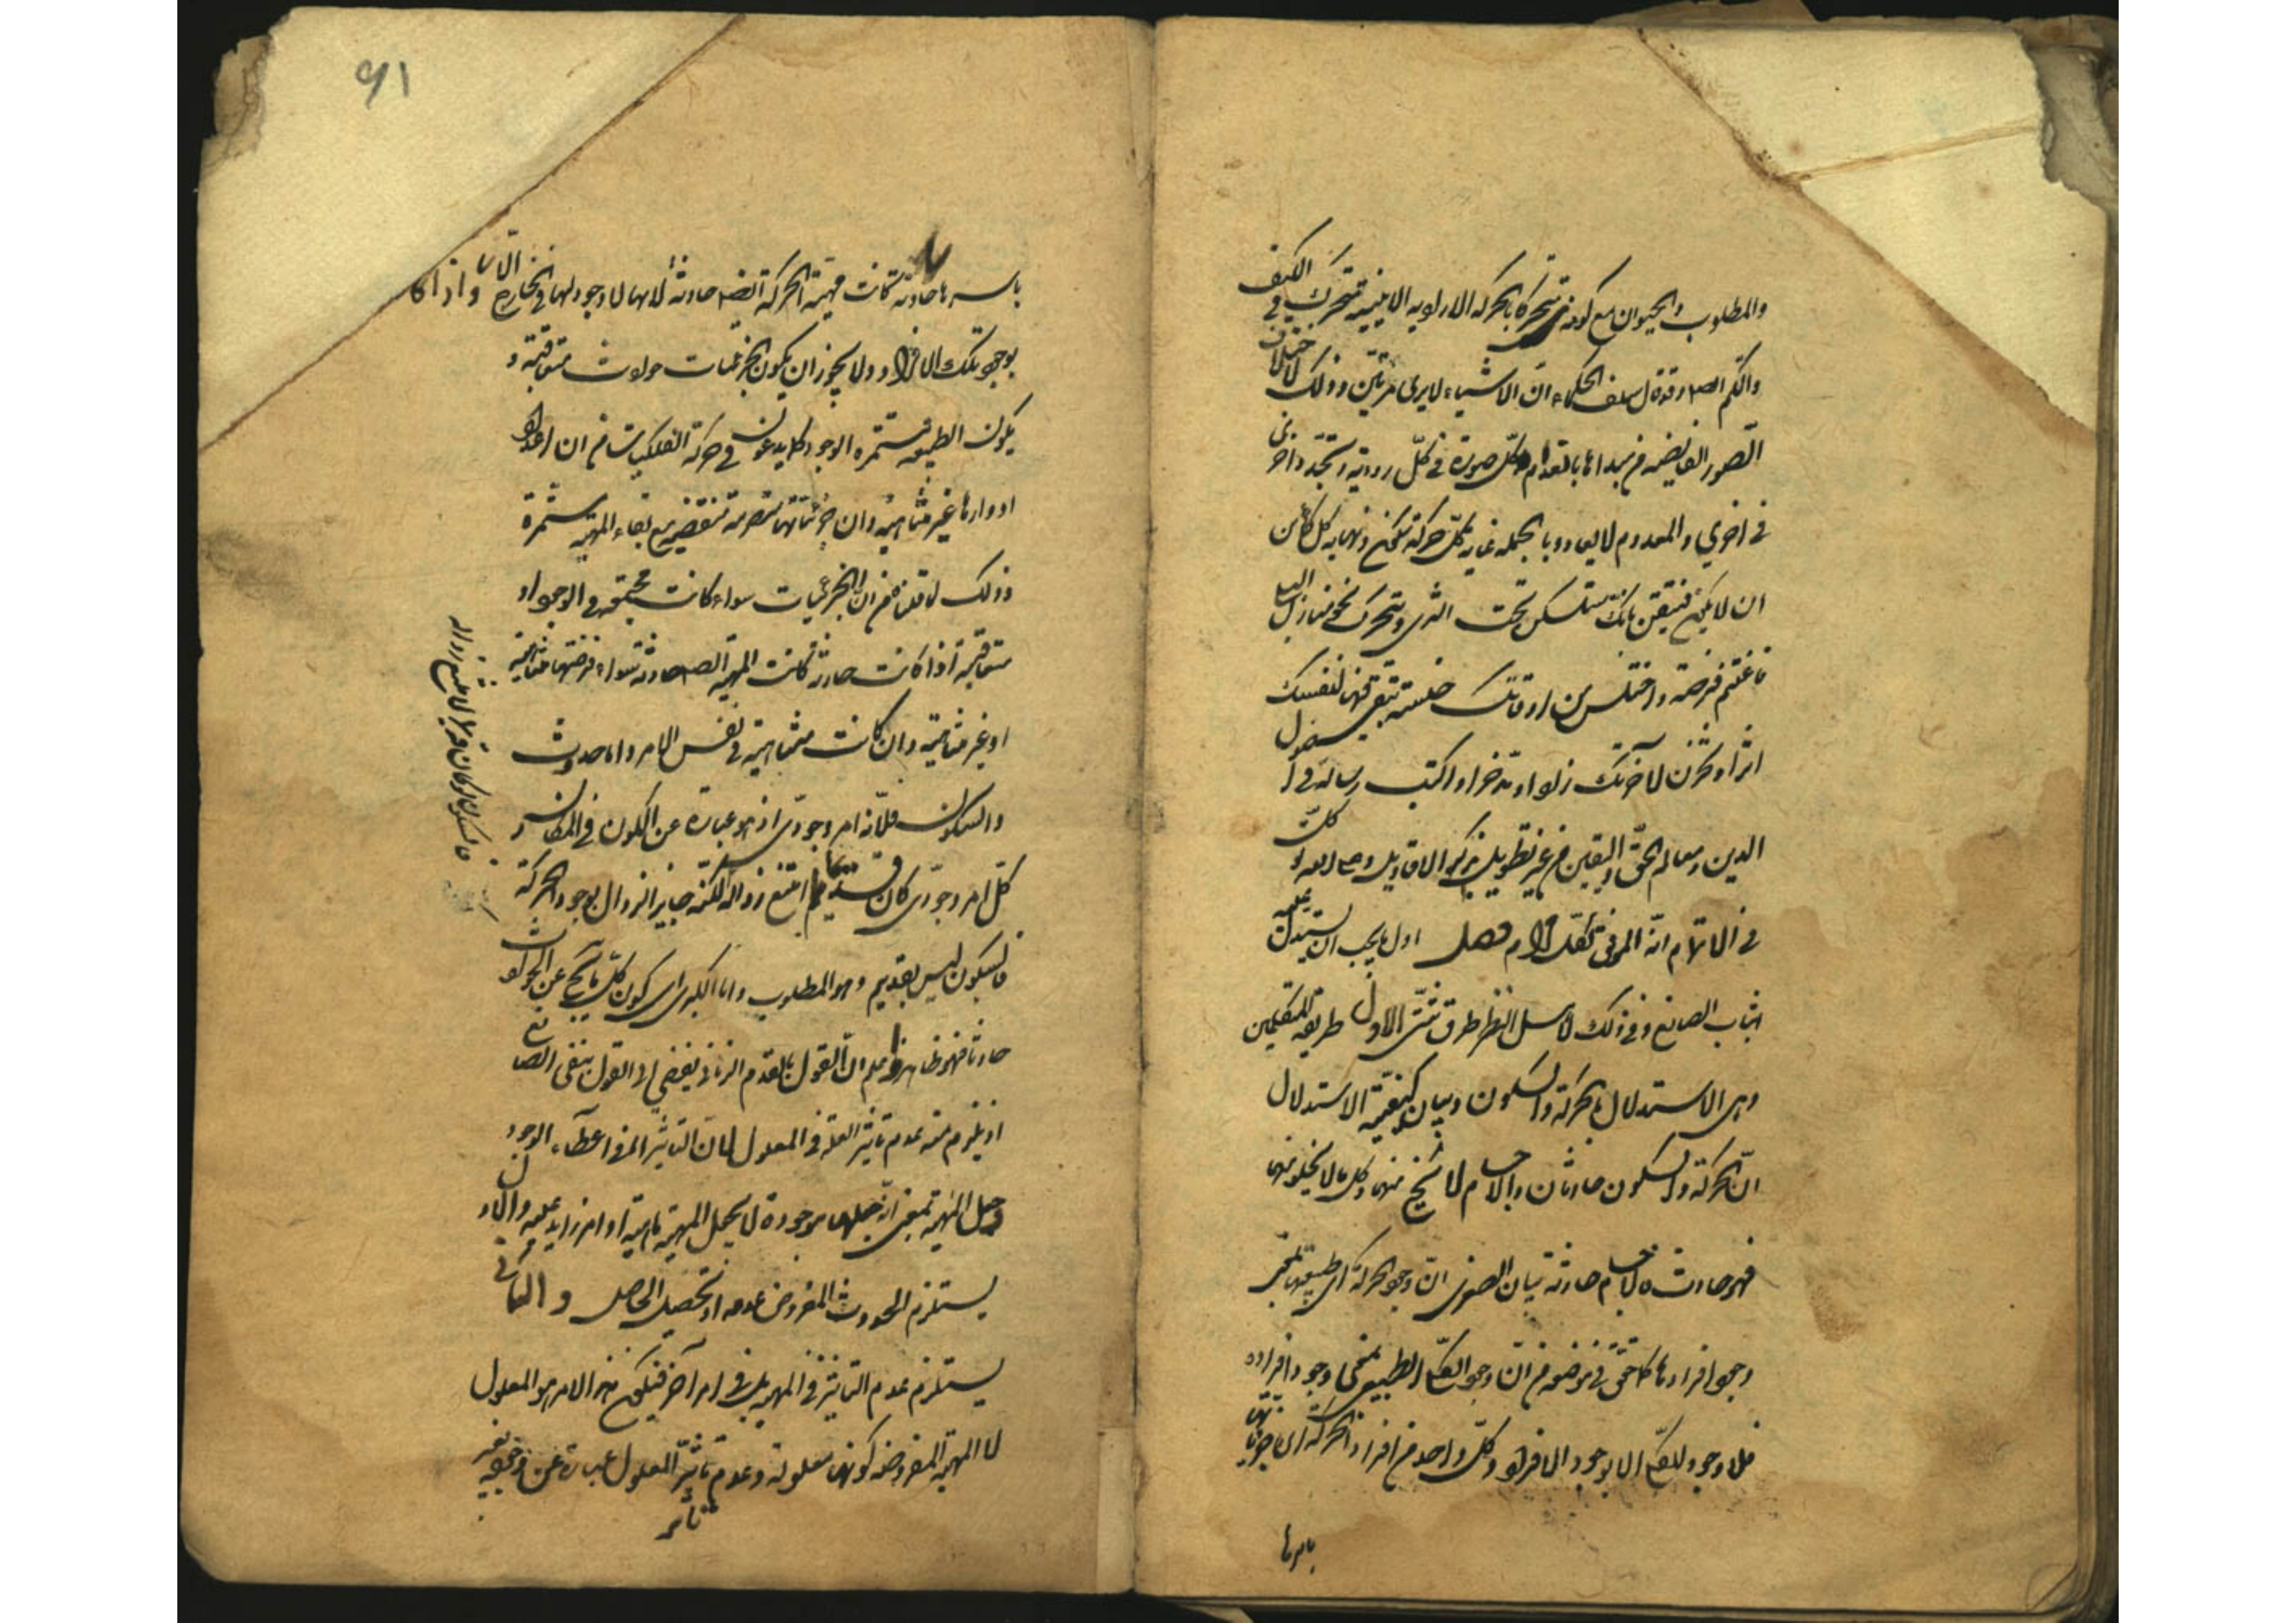 والمطلوب والحيوان مع كونه متحركا بالحركة الارادية الاينية متحرك في الكيف
والكم الصه وقد قال سلف الحكماء ان الاشياء لا يرى مرتين وذلك لاختلاف
الصور الفايضه من مبدأها بانعدام كل صورة في كل وتجدد اخرى
في اخرى والمعدوم لا يعاد وبالجملة غاية كل حركة سكون ونهاية كل كائن
ان لا يكون فتيقن بانك ستسكن تحت الثرى وتتحرك نحو منازل البلى
فاغتنم فرصة واختلس من اوقاتك خلسة تبقى فيها لنفسك
اثرا وتخزن لآخرتك زادا وتدخرا واكتب رسالة في اصول
الدين ومعالم الحق واليقين من غير تطويل بذكر الاقاويل
في الاتمام انه الموفق لكل مرام فصل اول ما يجب ان يستدل عليه
اثبات الصانع وفي ذلك لاهل النظر طرق شتى الاول طريقة المتكلمين
وهي الاستدلال بالحركة والسكون وبيان كيفية الاستدلال
ان الحركة والسكون حادثان والاجسام لا تخلو منهما وكل ما لا يخلو منهما
فهو حادث فالاجسام حادثة بيان الصغرى ان وجود الحركة اي طبيعتها بمعنى
وجود افرادها كما حقق في موضعه من ان وجود الكلي الطبيعي بمعنى وجود افراده
فلا وجود للكلي الا بوجود الافراد وكل واحد من افراد الحركة اي جزئياتها
باسرها
٩١
باسرها حادثة فكانت مهية الحركة ايضه حادثة لانها لا وجود لها في الخارج الا
بوجود تلك الافراد ولا يجوز ان يكون الجزئيات حوادث متعاقبة و
يكون الطبيعة مستمرة الوجود كما يدعون في حركة الفلكيات من ان اعداد
ادوارها غير متناهية وان جزئياتها متصرمة منقضية مع بقاء المهية مستمرة
وذلك لما قلنا من ان الجزئيات سواء كانت مجتمعة في الوجود او
متعاقبة اذا كانت حادثة كانت المهية الصه حادثة سواء فرضتها متناهية
او غير متناهية وان كانت متناهية في نفس الامر واما حدوث
السكون فلانه امر وجودي اذ هو عبارة عن الكون في المكان و
كل امر وجودي كان قديما امتنع زواله لكنه جايز الزوال بوجود الحركة
فالسكون ليس بقديم وهو المطلوب واما الكبرى اي كون كل ما لا يخلو عن الحوادث
حادثا فهو ظاهر واعلم ان القول بالقدم الزماني يفضي الى القول بنفي الصانع
اذ يلزم منه عدم تاثير العلة في المعلول لان التاثير اما في اعطاء الوجود
وجعل المهية بمعنى انه جعلها موجودة لا يجعل المهية مهية او امر زايد عليه والاول
يستلزم الحدوث المفروض عدمه او تحصيل الحاصل والثاني
يستلزم عدم التاثير في المهية بل في امر آخر فيكون هذا الامر هو المعلول
لا المهية المفروضه كونها معلولة وعدم تاثير المعلول عبارة عن
تاثر
فالسكون لو كان قديما لامتنع زواله